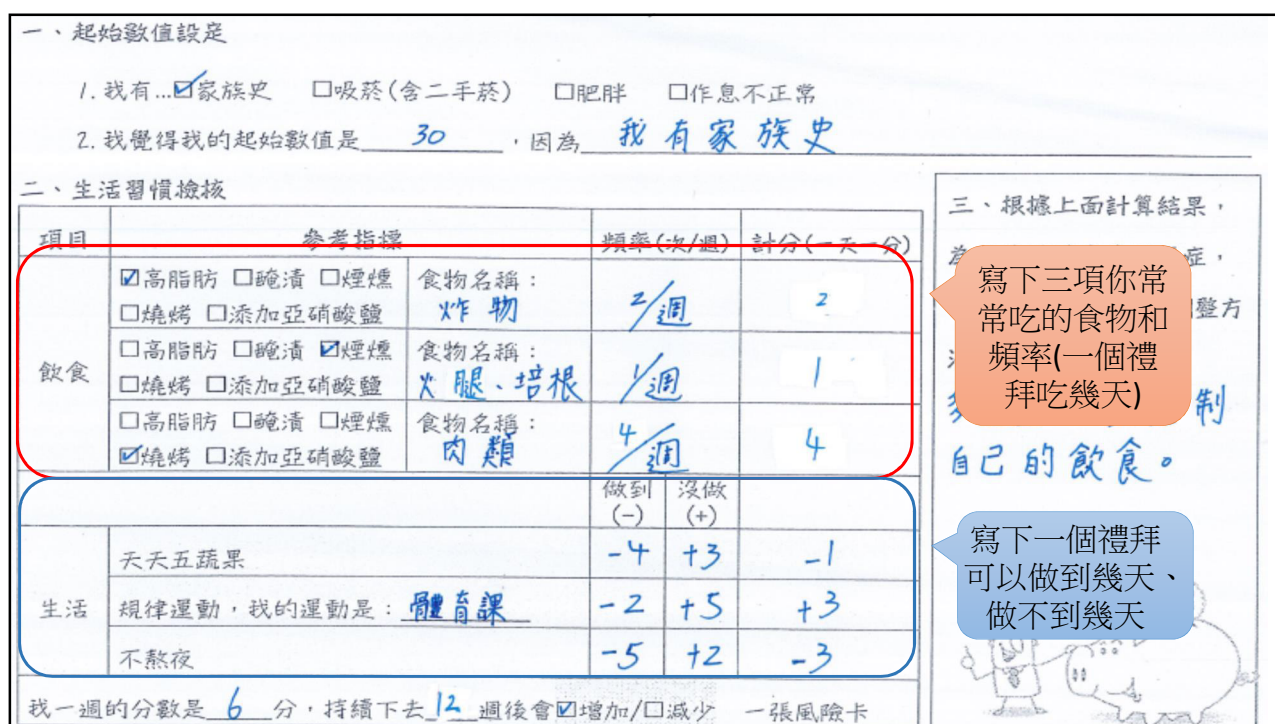 一、起始數值設定
1. 我有…☑家族史 □吸菸(含二手菸) □肥胖 □作息不正常
2. 我覺得我的起始數值是 30 ，因為 我有家族史
二、生活習慣檢核
項目 參考指標 頻率(次/週) 計分(一天一分)
飲食
☑高脂肪 □醃漬 □煙燻 食物名稱：
□燒烤 □添加亞硝酸鹽 炸物 2/週 2
□高脂肪 □醃漬 ☑煙燻 食物名稱：
□燒烤 □添加亞硝酸鹽 火腿、培根 1/週 1
□高脂肪 □醃漬 □煙燻 食物名稱：
☑燒烤 □添加亞硝酸鹽 肉類 4/週 4
做到(-) 沒做(+)
生活
天天五蔬果 -4 +3 -1
規律運動，我的運動是：體育課 -2 +5 +3
不熬夜 -5 +2 -3
我一週的分數是 6 分，持續下去 12 週後會☑增加/□減少 一張風險卡
三、根據上面計算結果，
症，
整方
制
自己的飲食。
寫下三項你常
常吃的食物和
頻率(一個禮
拜吃幾天)
寫下一個禮拜
可以做到幾天、
做不到幾天